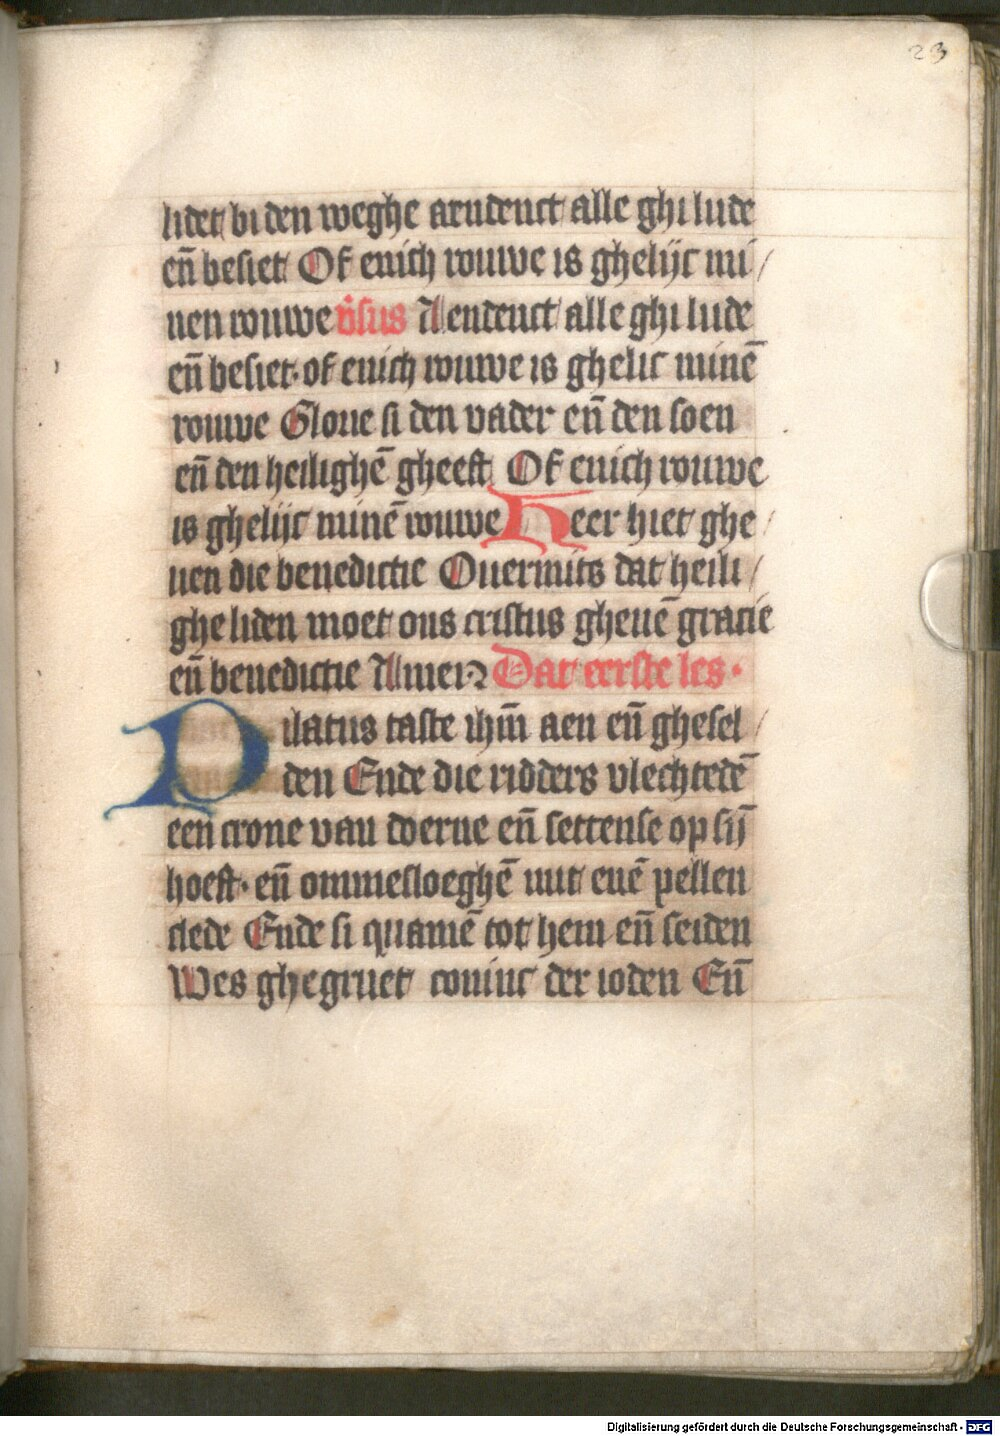 23
lidet bi den weghe aendenct alle ghi lude
en̄ besiet Of enich rouwe is ghelijc mi/
nen rouwe v̄sus Aendenct alle ghi lude
en̄ besiet· of enich rouwe is ghelic minē
rouwe Glorie si den vader en̄ den soen
en̄ den heilighē gheest Of enich rouwe
is ghelijc minē rouwe Heer hiet ghe/
uen die benedictie Ouermits dat heili/
ghe liden moet ons cristus gheuē gracie
en̄ benedictie Amen Dat eerste les·
Pilatus taste ihm̄ aen en̄ ghesel/
den Ende die ridders vlechtedē
een crone van doerne en̄ settense op sij̄
hoeft· en̄ ommesloeghē mit enē pellen
clede Ende si quamē tot hem en̄ seiden
Wes ghegruet coninc der ioden En̄
Digitalisierung gefördert durch die Deutsche Forschungsgemeinschaft - DFG